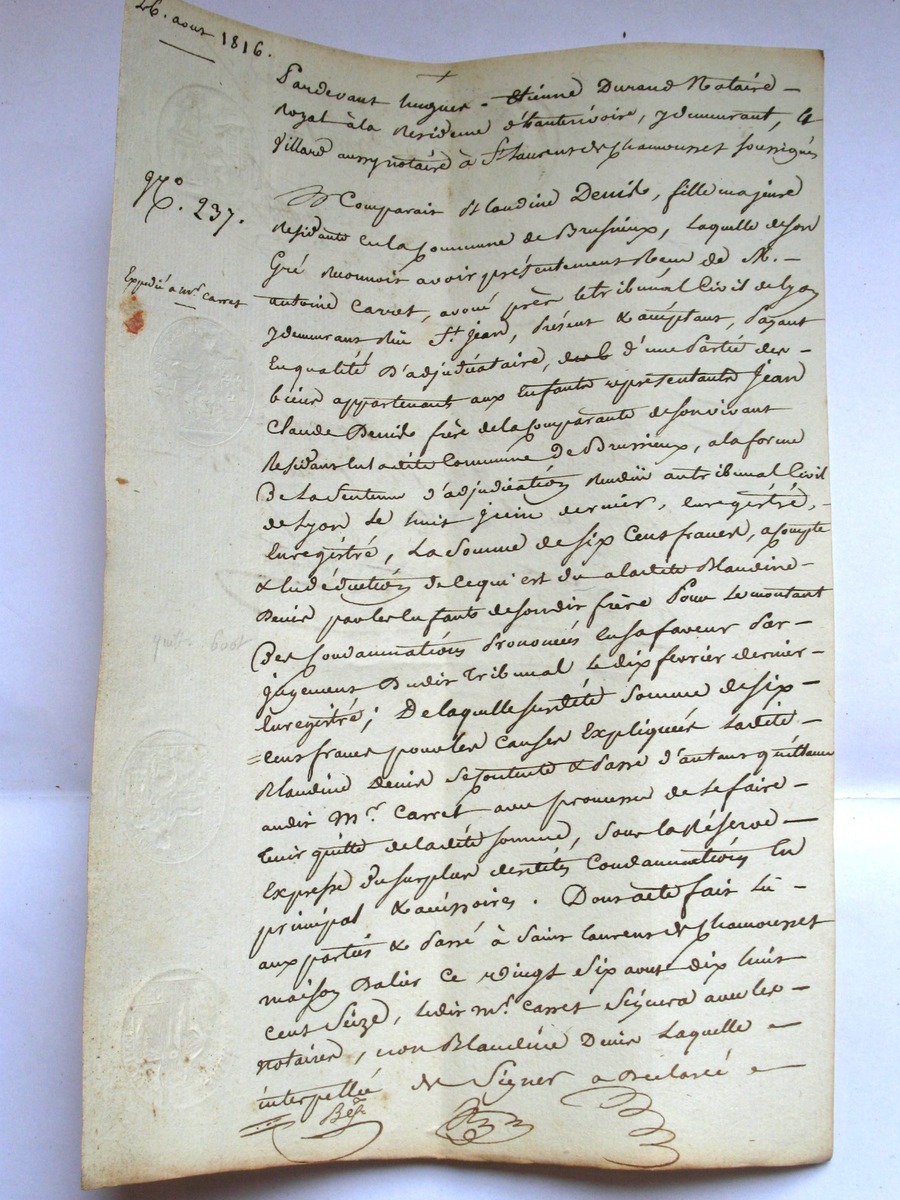 26. aout 1816.
Pardevant hugues - Etienne Durand Notaire -
Royal à la Residence d'hauterivoire, y demeurant, &
Villard aussy notaire à St. Laurent de Chamousset soussignés
No. 237.
Comparait Blandine Denis, fille majeure
Residante en la Commune de Brusieux, Laquelle de son
Gré Reconnoit avoir présentement Receu de M. -
Expédié à Mr. Carret
antoine Carret, avoué près le tribunal Civil de Lyon
y demeurant Rüe St. Jean, présent & acceptant, payant
En qualité D'adjudicataire, d'une Partie des -
biens appartenants aux Enfants représentants Jean
Claude Denis frère de la Comparante de son vivant
Residant en ladite Commune De Brussieux, a la forme
De La Sentence d'adjudication Rendüe au tribunal Civil
de Lyon Le huit Juin dernier, enregistré, -
Enregistré, La Somme de Six Cens francs, a Compte
& En déduction de ce qui est du a ladite Blandine -
Denis par les Enfants de son dit frère Pour Le montant
Des Condamnations Prononcées En sa faveur Par -
jugement Dudit Tribunal Le dix fevrier dernier -
Enregistré; De laquelle Susdite Somme de Six -
=Cens francs pour les Causes Expliquées Ladite -
Blandine Denis Se Contente & Passe d'autant quittance
audit Mr. Carret avec promesse de Le faire -
tenir quitte de ladite somme, Sous la Réserve -
Expresse du surplus desdites Condamnations En
principal & accessoires. Dont acte fait Lu -
aux parties & Passé à Saint Laurent de Chamousset
maison ce vingt Six aout dix huit
Cent Seize, Ledit Mr. Carret Signera avec les -
notaires, non Blandine Denis Laquelle -
interpellée de Signer a Déclaré -